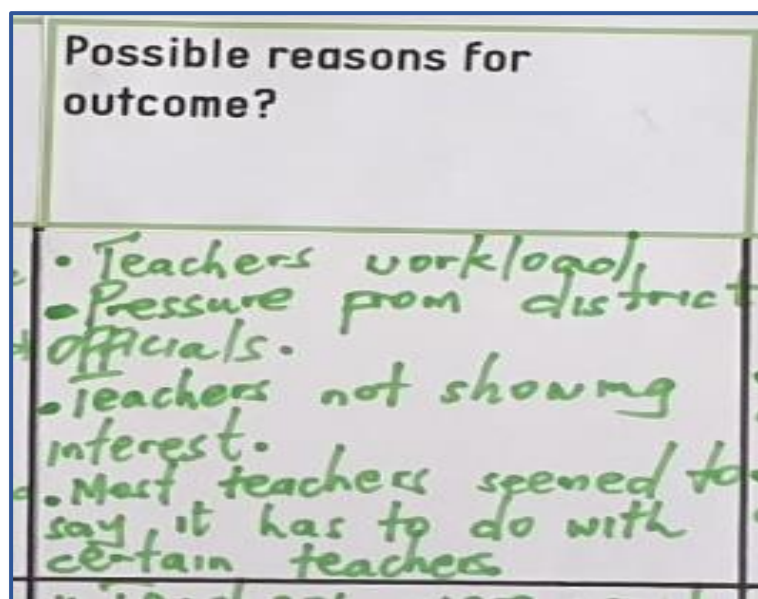 Possible reasons for
outcome?
• Teachers workload,
• Pressure from district
officials.
• Teachers not showing
interest.
• Most teachers seemed to
say it has to do with
certain teachers.